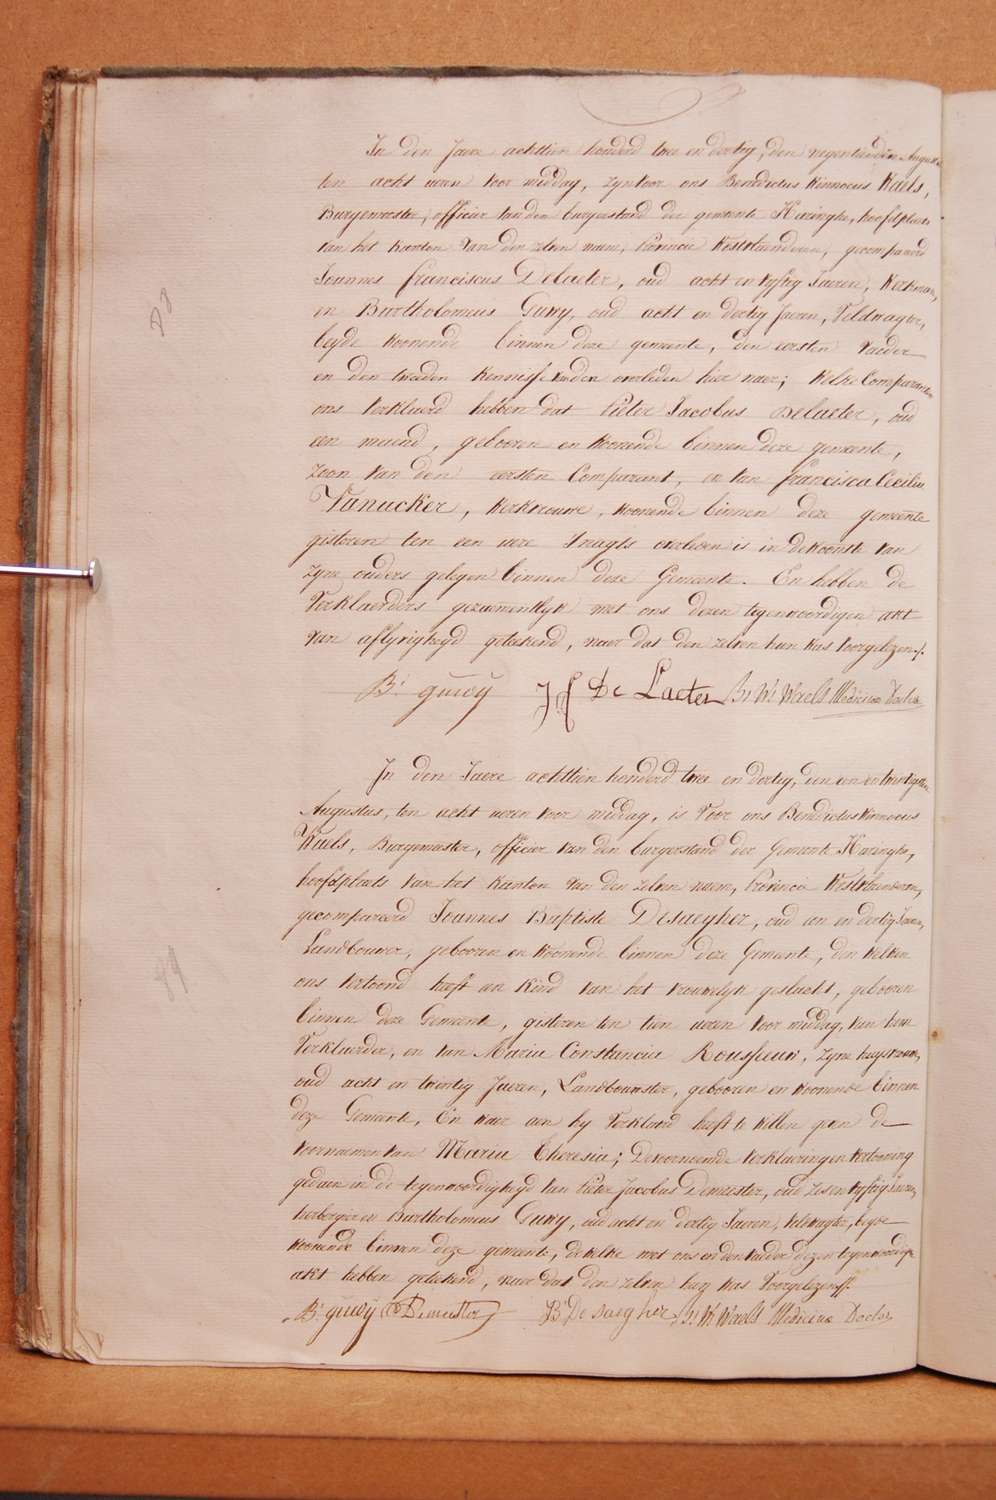 In den Jaere achttien honderd twee en dertig, den negentienden Augustus
ten acht ueren voor middag, zyn voor ons Benedictus Winnocus Waels,
Burgemeester, officier van den burgerstand der gemeente Haringhe, hoofdplaets
van het kanton van den zelven naem, Provincie Westvlaenderen, gecompareerd
Joannes Franciscus Delaeter, oud acht en vyftig Jaeren, Werkman,
en Bartholomeus Guwy, oud acht en dertig Jaeren, Veldwagter,
beyde woonende binnen deze gemeente, den eersten Vaeder
en den tweeden kennisse van den overleden hier naer; welke Comparanten
ons verklaerd hebben dat Pieter Jacobus Delaeter, oud
een maend, gebooren en woonende binnen deze gemeente,
zoon van den eersten Comparant, en van Francisca Cecilia
Vanacker, werkvrouwe, woonende binnen deze gemeente
gisteren ten een uere 's nagts overleden is in de wooninge van
zyne ouders gelegen binnen deze Gemeente. En hebben de
Verklaerders gezaementlyk met ons dezen tegenwoordigen akt
van aflyvigheyd geteekend, naer dat den zelven hun was voorgelezen./.
Bs. guwy JF De Laeter Bs. Ws. Waels Medicinæ Doctor
88
In den Jaere achttien honderd twee en dertig, den een en twintigsten
Augustus, ten acht ueren voor middag, is voor ons Benedictus Winnocus
Waels, Burgemeester, officier van den burgerstand der Gemeente Haringhe,
hoofdplaets van het Kanton van den zelven naem, Provincie Westvlaenderen,
gecompareerd Joannes Baptiste Desaegher, oud een en dertig Jaeren,
Landbouwer, gebooren en woonende binnen deze Gemeente, den welken
ons vertoond heeft een kind van het vrouwelyk geslacht, gebooren
binnen deze Gemeente, gisteren ten tien ueren voor middag, van hem
Verklaerder, en van Maria Constancia Rousseeuw, zyne huysvrouw,
oud acht en twintig Jaeren, Landbouwster, gebooren en woonende binnen
deze Gemeente, En waer aen hy verklaerd heeft te willen geven de
voornaemen van Maria Theresia; De voornoemde verklaeringe en vertooning
gedaen in de tegenwoordigheyd van Pieter Jacobus Demeester, oud zes en vyftig Jaeren,
herbergier en Bartholomeus Guwy, oud acht en dertig Jaeren, veldwagter, beyde
woonende binnen deze gemeente, de welke met ons en den vaeder dezen tegenwoordigen
akt hebben geteekend, naer dat den zelven hun was voorgelezen./.
Bs. guwy P Demeester B De saegher Bs. Ws. Waels Medicinæ Doctor
89